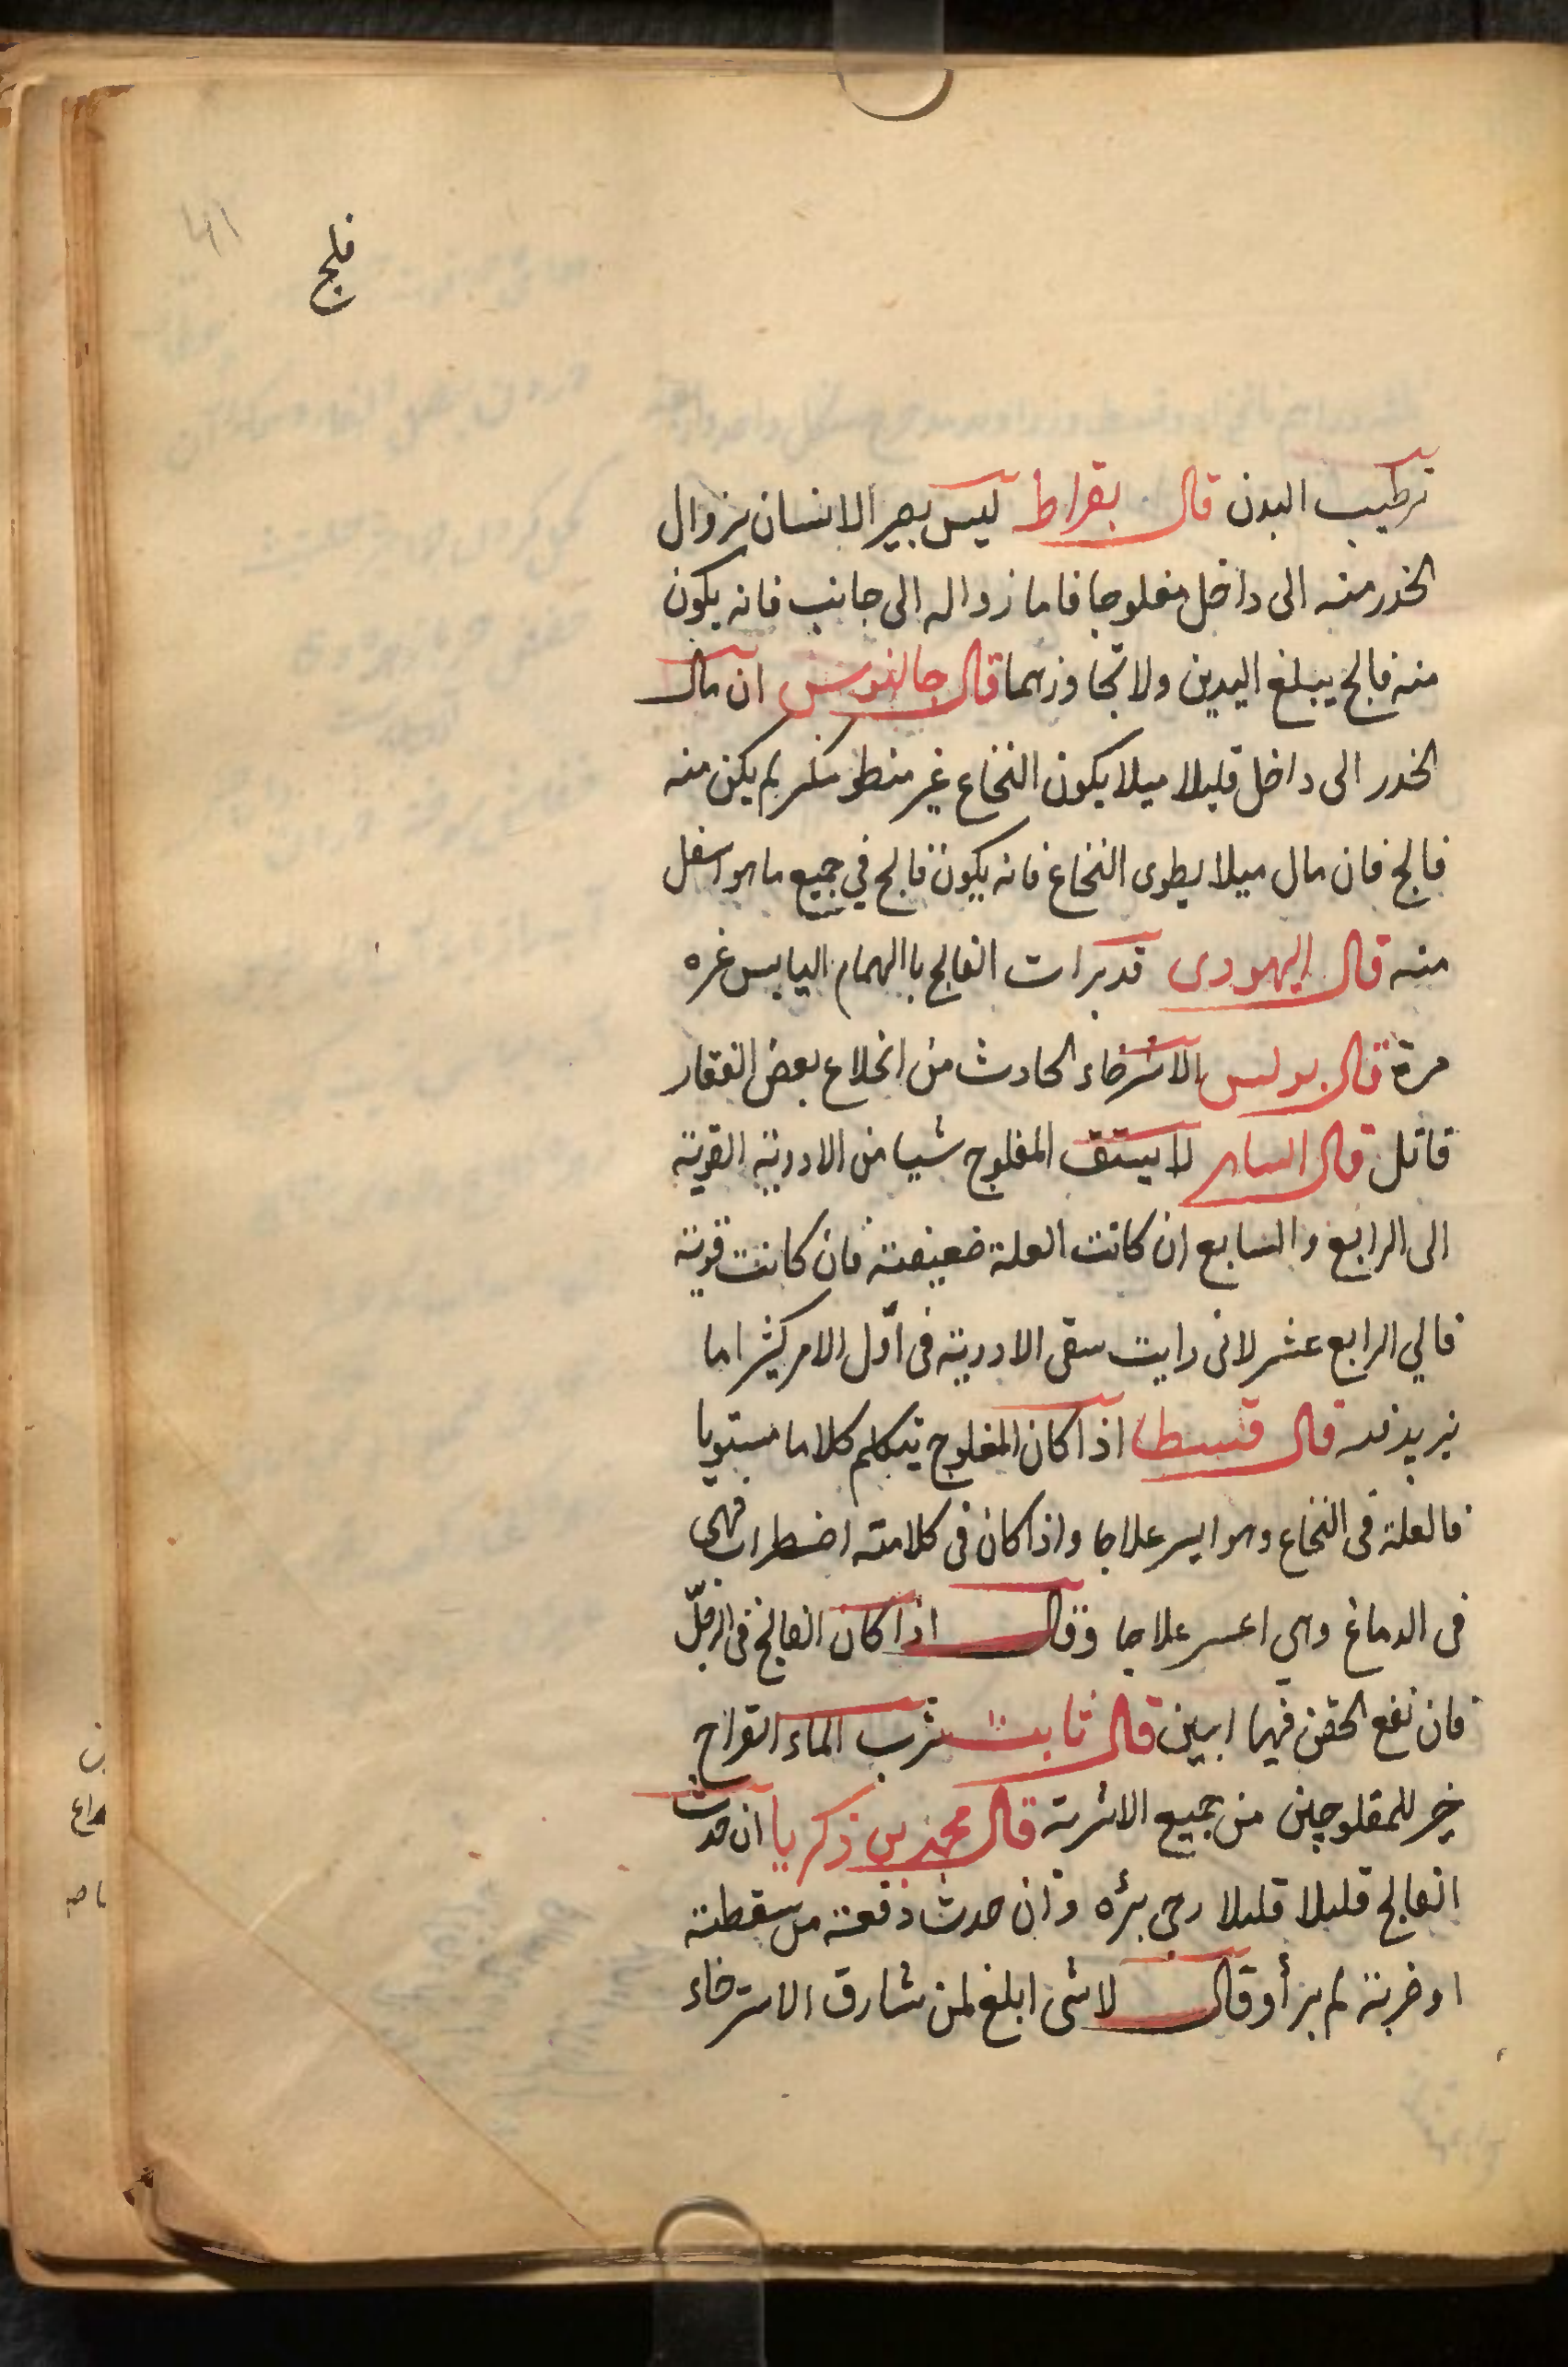 فلج
ترطيب البدن قال بقراط ليس يصير الانسان بزوال
الخدر منه الى داخل مفلوجا فاما زواله الى جانب فانه يكون
منه فالج يبلغ اليدين ولا تجاوزهما قال جالنوس ان مال
الخدر الى داخل قليلا ميلا يكون النخاع غير منطو منكسر لم يكن منه
فالج فان مال ميلا يطوى النخاع فانه يكون فالج في جميع ما هو اسفل
منه قال اليهودى قد برات الفالج باالهمام اليابس غره
مرة قال بولس الاسترخاء الحادث من انخلاع بعض الفقار
قاتل قال الساهر لا يستق المفلوج شيا من الادوية القوية
الى الرابع والسابع ان كانت العلة ضعيفة فان كانت قوية
فالي الرابع عشر لانى رايت سقى الادوية فى اول الامر كثيرا ما
يزيد فيه قال قسطا اذا كان المفلوج يتكلم كلاما مستويا
فالعلة فى النخاع وهو ايسر علاجا واذا كان فى كلامته اضطراب فهى
فى الدماغ وهي اعسر علاجا وقال اذا كان الفالج فى الرجل
فان نفع الحقن فيها ابين قال ثابت شرب الماء القراح
خير للمفلوجين من جميع الاشربة قال محمد بن زكريا ان حدث
الفالج قليلا قليلا رجى برؤه وان حدث دفعة من سقطة
او ضربة لم يبرأ وقال لا شى ابلغ لمن شارف الاسترخاء